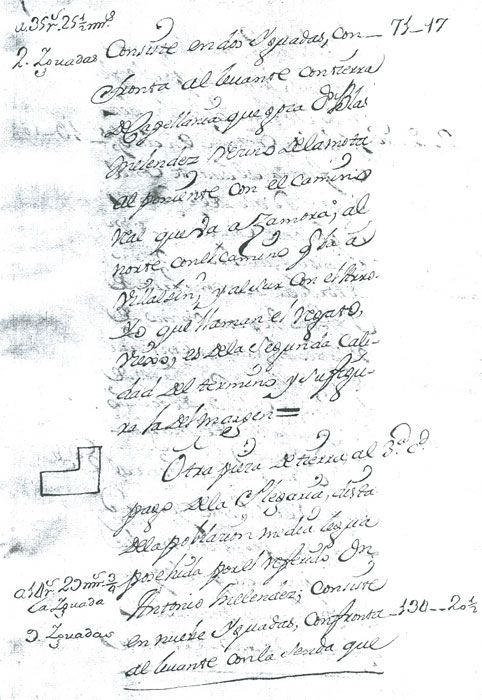 a 35 r.s 25 1/2 mrs
2. Yguadas Consiste en dos Yguadas, con— 71—17
fronta al levante con tierra
de Capellania que goza Dn Blas
Melendez Vezino de la mota
al poniente con el camino
Real que va a Zamora; al
norte con el camino q. va a
y al sur con el Arro-
yo que llaman el Regato,
es de la segunda cali-
dad del termino y su figu-
ra la del margen =
Otra pieza de tierra al
pago de la dista
de la poblacion media legua
posehida por el referido Dn
a 14 r.s 29 mrs 3/4 Antonio Melendez; Consiste
la Yguada
9. Yguadas en nueve Yguadas, Confronta—134—20 1/2
al levante con la senda que